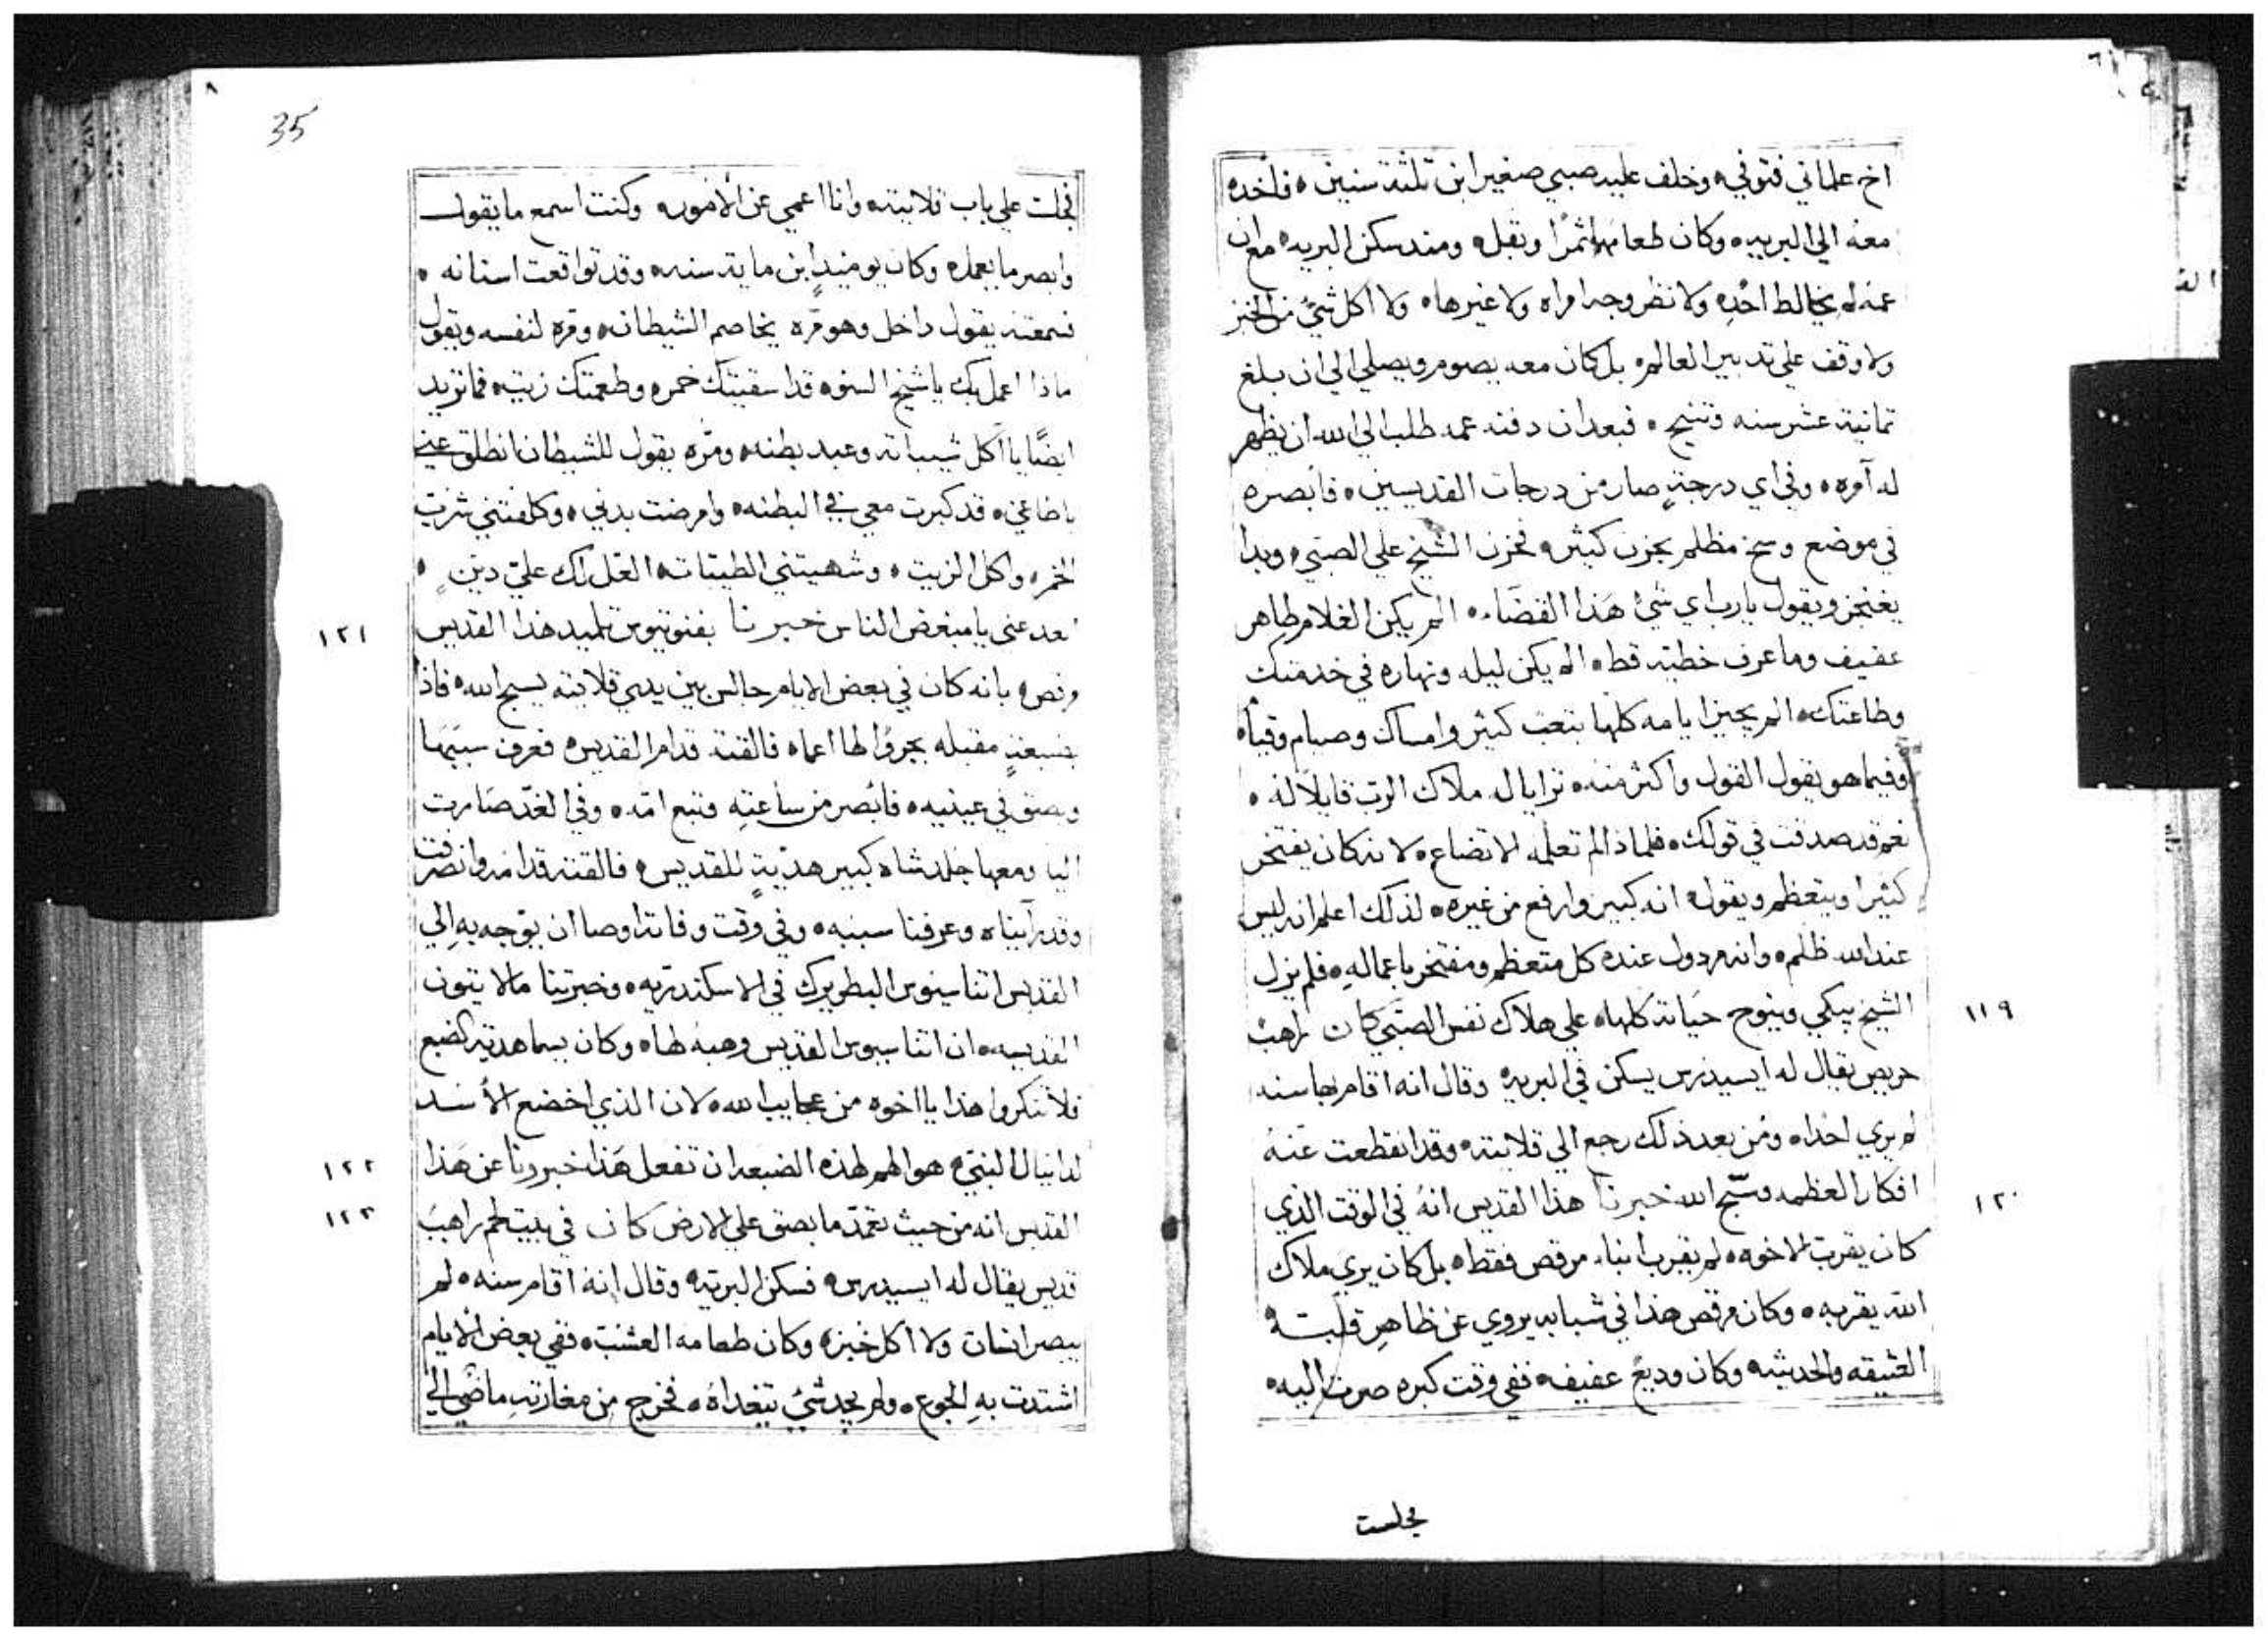 اخ علماني فتوفي ه وخلف عليه صبي صغير ابن ثلثة سنين ه فاخده
معه الي البريه ه وكان طعامهما ثمرا وبقل ه ومند سكن البريه مع ان
عمه لم يخالط احد ه ولا نظر وجه امراه ولا غيرها ه ولا اكل شي من الخبز
ولا وقف علي تدبير العالم ه بل كان معه يصوم ويصلي الي ان بلغ
تمانية عشر سنه وتنيح ه فبعد ان دفنه عمه طلب الي الله ان يظهر
له آمره ه وفي اي درجةٍ صار من درجات القديسين ه فابصره
في موضع وسخ مظلم بحزن كثير ه فحزن الشيخ علي الصبي ه وبدا
يغتحن ويقول يارب اي شي هذا القضاء ه الم يكن الغلام طاهر
عفيف وما عرف خطيه قط ه الم يكن ليله ونهاره في خدمتك
وطاعتك ه الم يجيز ايامه كلها بتعب كثير وامساك وصيام وقيام
وفيما هو يقول القول واكثر منه ه ترايا له ملاك الرب قايلا له ه
نعم قد صدقت في قولك ه فلماذا لم تعلمه الاتضاع ه لانه كان يفتخر
كثيرا ويتعظم ويقول ه انه كبير وارفع من غيره ه لذلك اعلم انه ليس
عند الله ظلم ه وانه مردول عنده كل متعظم ومفتخر باعماله ه فلم يزل
الشيخ يبكي وينوح حياته كلها ه علي هلاك نفس الصبي كان راهب
١١٩
حريص يقال له ايسيدرس يسكن في البريه وقال انه اقام بها سنه
لم يري احدا ه ومن بعد ذلك رجع الي قلايته ه وقد انقطعت عنه
افكار العظمه وسبح الله خبرنا هذا القديس انه في الوقت الذي
١٢٠
كان يقرب الاخوه ه لم يقرب انبا مرقص فقط ه بل كان يري ملاك
الله يقربه ه وكان مرقص هذا في شبابه يروي عن ظاهر قلبه
العتيقه والحديثه وكان وديع عفيف ه ففي وقت كبره صرت اليه ه
فجلست
35
فجلست علي باب قلايته ه وانا اعمي عن الامور ه وكنت اسمع ما يقول
وابصر ما يعمل ه وكان يوميدٍ ابن ماية سنه ه وقد تواقعت اسنانه ه
فسمعته يقول داخل وهو مره يخاصم الشيطان ه ومره لنفسه ويقول
ماذا اعمل بك يا شيخ السو ه قد اسقيتك خمر ه وطعمتك زيت ه فما تريد
ايضًا يا اكل شيباته وعبد بطنه ه ومره يقول للشيطان انطلق عني
يا طاغي ه قد كبرت معي في البطنه ه وامرضت بدني ه وكلفتني شرب
الخمر ه واكل الزيت ه وشهيتني الطيبات ه العل لك علي دينٍ ه
ابعد عني يا مبغض الناس خبرنا بفنوتيوس تلميد هذا القديس
١٢١
مرقص ه بانه كان في بعض الايام جالس بين يدي قلايته يسبح الله ه فاذا
بضبعةٍ مقبله بجروٍ لها اعما ه فالقته قدام القديس ه فعرف سببها
وبصق في عينيه ه فابصر من ساعته وتبع امه ه وفي الغد صارت
الينا ومعها جلد شاه كبير هديةٍ للقديس ه فالقته قدامه وانصرفت
وقد رآيناه وعرفنا سببه ه وفي وقت وفاته اوصا ان يتوجه به الي
القديس اتناسيوس البطريرك في الاسكندريه ه وخبرتنا مالانيتون
القديسه ه ان اتناسيوس القديس وهبه لها ه وكان يسما هدية الضبع
فلا تنكروا هذا يا اخوه من عجايب الله ه لان الذي اخضع الاسد
لدانيال النبي ه هو الهم لهذه الضبعه ان تفعل هذا خبرونا عن هذا
١٢٢
القديس انه من حيث تعمد ما بصق علي الارض كان في بيت لحم راهب
١٢٣
قديس يقال له ايسيدرس ه فسكن البريه وقال انه اقام سنه ه لم
يبصر انسان ولا اكل خبز ه وكان طعامه العشب ه ففي بعض الايام
اشتدت به الجوع ه ولم يجد شي يتغداه ه فخرج من مغارته ماضي الي